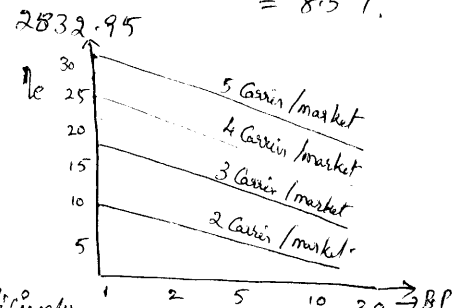 = 8.5 %.
2832.95
30
ηc
25
20
15
10
5
5 Carrier/market
4 Carrier/market
3 Carrier/market
2 Carrier/market.
1 2 5 10 20 → BP